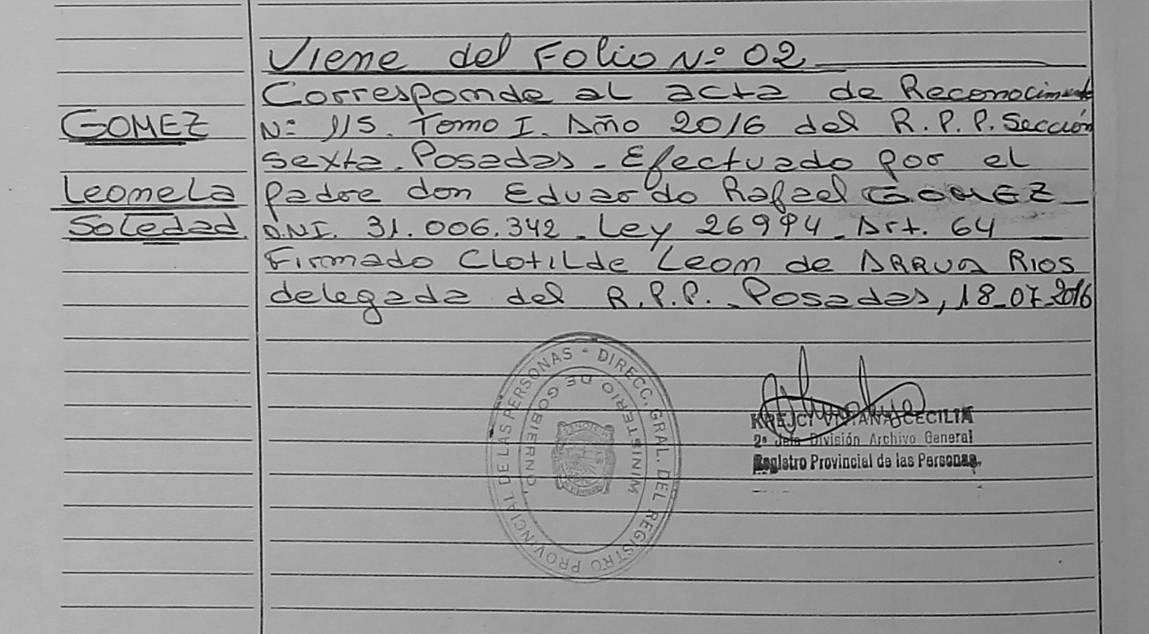 Viene del Folio N: 02
GOMEZ
Leonela
Soledad
Corresponde al acta de Reconocimiento
N: 115. Tomo I. Año 2016 del R.P.P. Sección
sexta. Posadas - Efectuado por el
padre don Eduardo Rafael GOMEZ
D.N.I. 31.006.342 - Ley 26994 - Art. 64
Firmado Clotilde Leon de ARRUA RIOS
delegada del R.P.P. - Posadas, 18-07-2016
DIRECC. GRAL. DEL REGISTRO PROVINCIAL DE LAS PERSONAS -
MINISTERIO DE GOBIERNO
KREJCI VIVIANA CECILIA
2ª Jefe División Archivo General
Registro Provincial de las Personas.